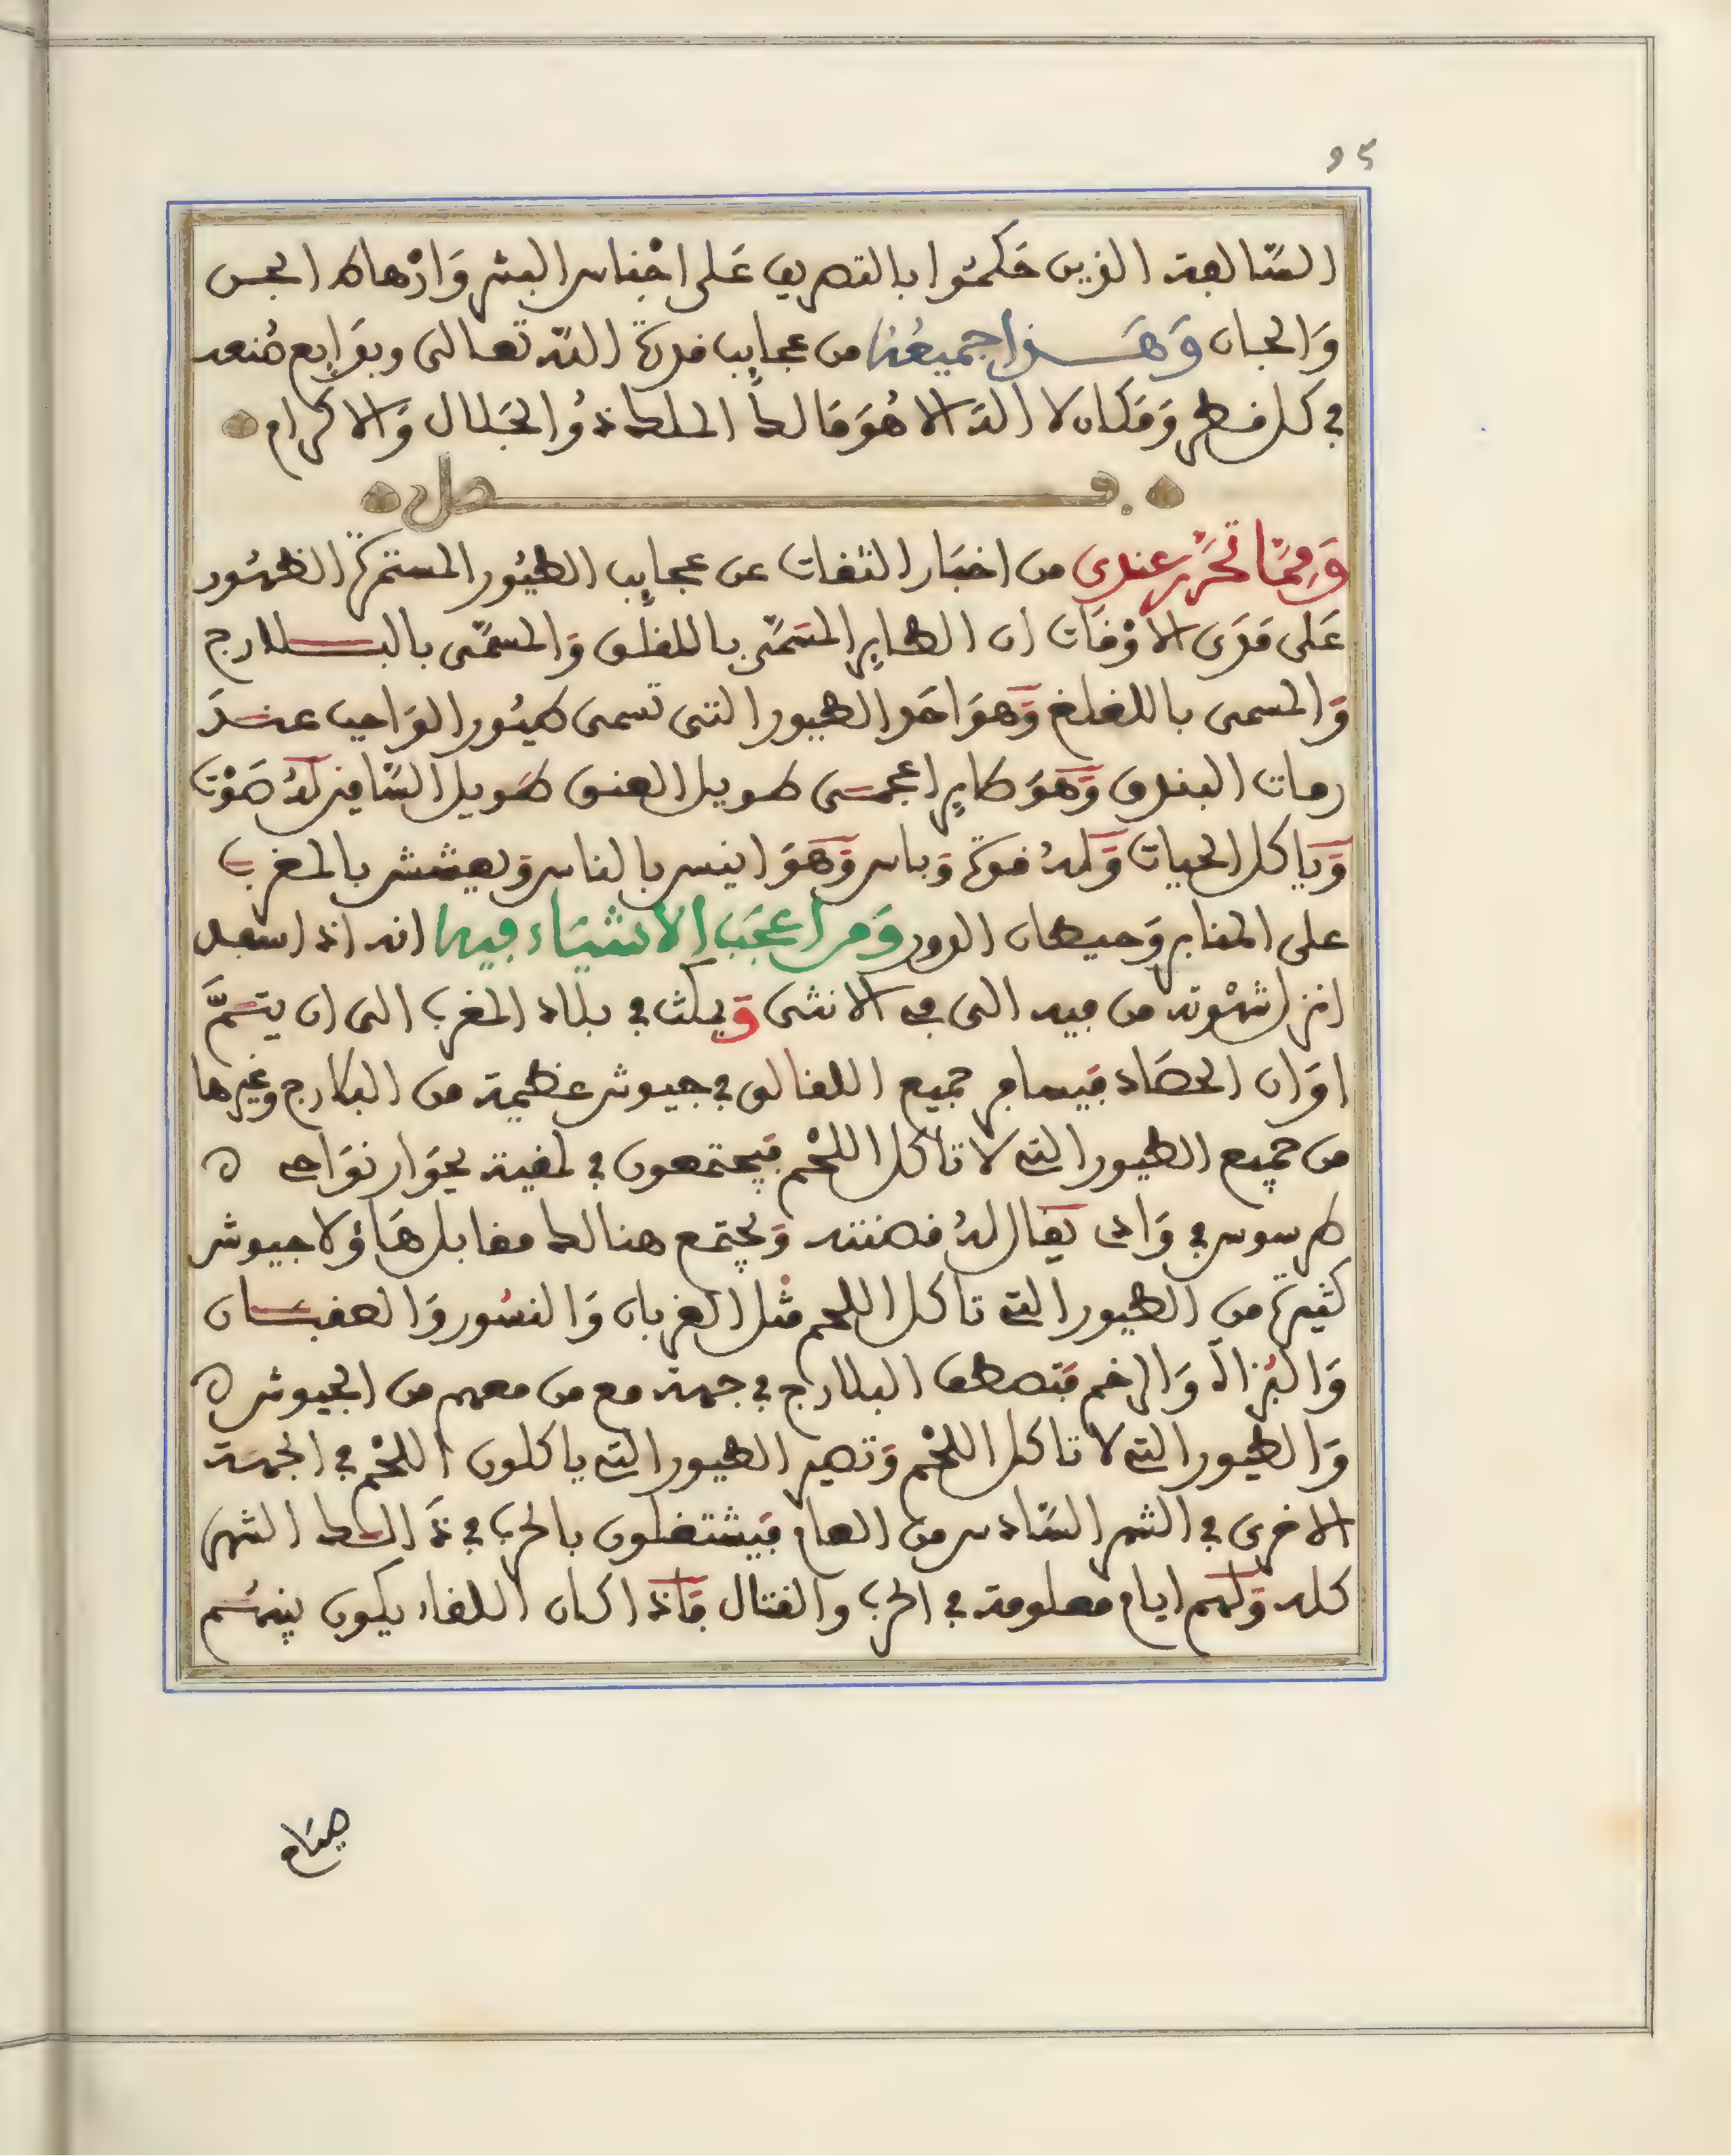 95
السّالفة الذين حَكموا بالتصريف عَلى اجْناس البشر وَارْهاط الجن
وَالجان وَهَذا جميعُه من عجايب قدرة اللّه تعالى وبدَايع صُنعه
في كل قطر وَمَكان لا اله الا هُوَ مَالك الملك ذُو الجَلال وَالاكرام
فصل
وَممّا تحَرّر عندي من اخبَار الثقات عن عجايب الطيُور المستمرة الظهُور
عَلى مَدَى الاوْقات ان الطاير المسَمّى باللقلق وَالمسمّى بالبلارج
وَالمسمى باللغلغ وَهوَ احَد الطيور التي تسمى طيُور الوَاجب عندَ
رمات البندق وَهوَ طاير اعجمي طويل العنق طَويل السّاقين لهُ صَوْت
وَياكل الحيات وَلهُ قوة وَباس وَهوَ انيس بالناس وَيعشش بالمغرب
على المنابر وَحيطان الدور وَمن اعجَب الاشيَاء فيه انه اذا سعد
انزل شهْوته من فيه الى في الانثى وَيمكث في بلاد المغرب الى ان يتمَّ
اوَان الحصَاد فيسافر جميع اللقالق في جيوش عظيمة من البلارج وغيرها
من جميع الطيور التي لا تاكل اللحْم فيجتمعون في لمقية بجوَار نوَاحي
طرسوس في وَادي يقال لهُ قصننه وَيجتمع هنالك مقابل هَاؤلا جيوش
كثيرة من الطيور التي تاكل اللحم مثْل الغربان وَالنسُور وَالعقبان
وَالبُزاة وَالرخم فتصطف البلارج في جهة مع من معهم من الجيوش
وَالطيور التي لا تاكل اللحْم وَتصير الطيور التي ياكلون اللحْم في الجهَة
الاخرى في الشهر السّادس من العام فيشتغلون بالحرب في ذَالك الشهر
كله وَلهم ايام معلومة في الحرب والقتال فاذا كان اللقاء يكون بينهُم
صيَاح